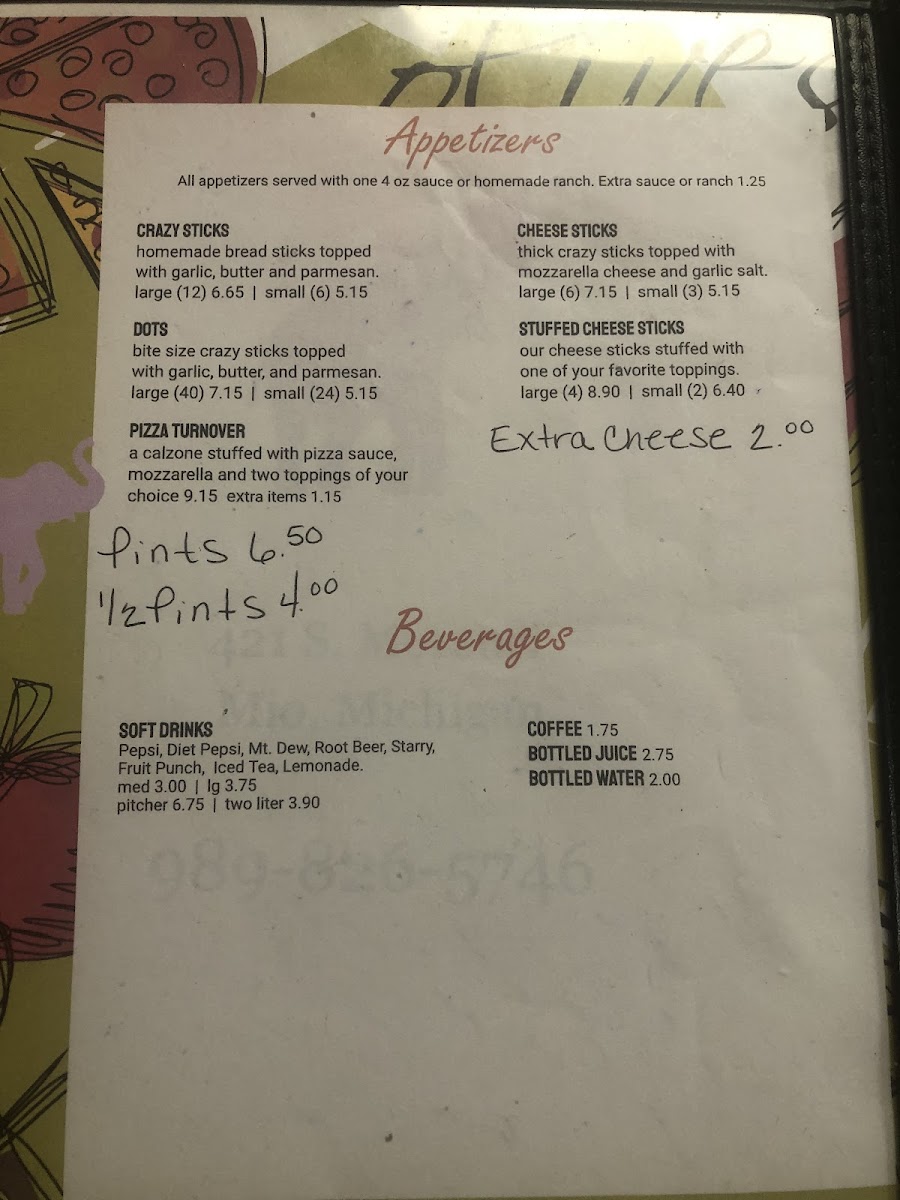 Appetizers
All appetizers served with one 4 oz sauce or homemade ranch. Extra sauce or ranch 1.25
CRAZY STICKS
homemade bread sticks topped
with garlic, butter and parmesan.
large (12) 6.65 | small (6) 5.15
DOTS
bite size crazy sticks topped
with garlic, butter, and parmesan.
large (40) 7.15 | small (24) 5.15
PIZZA TURNOVER
a calzone stuffed with pizza sauce,
mozzarella and two toppings of your
choice 9.15 extra items 1.15
Pints 6.50
1/2 Pints 4.00
CHEESE STICKS
thick crazy sticks topped with
mozzarella cheese and garlic salt.
large (6) 7.15 | small (3) 5.15
STUFFED CHEESE STICKS
our cheese sticks stuffed with
one of your favorite toppings.
large (4) 8.90 | small (2) 6.40
Extra Cheese 2.00
Beverages
SOFT DRINKS
Pepsi, Diet Pepsi, Mt. Dew, Root Beer, Starry,
Fruit Punch, Iced Tea, Lemonade.
med 3.00 | lg 3.75
pitcher 6.75 | two liter 3.90
COFFEE 1.75
BOTTLED JUICE 2.75
BOTTLED WATER 2.00
Mio, Michigan
989-826-5746